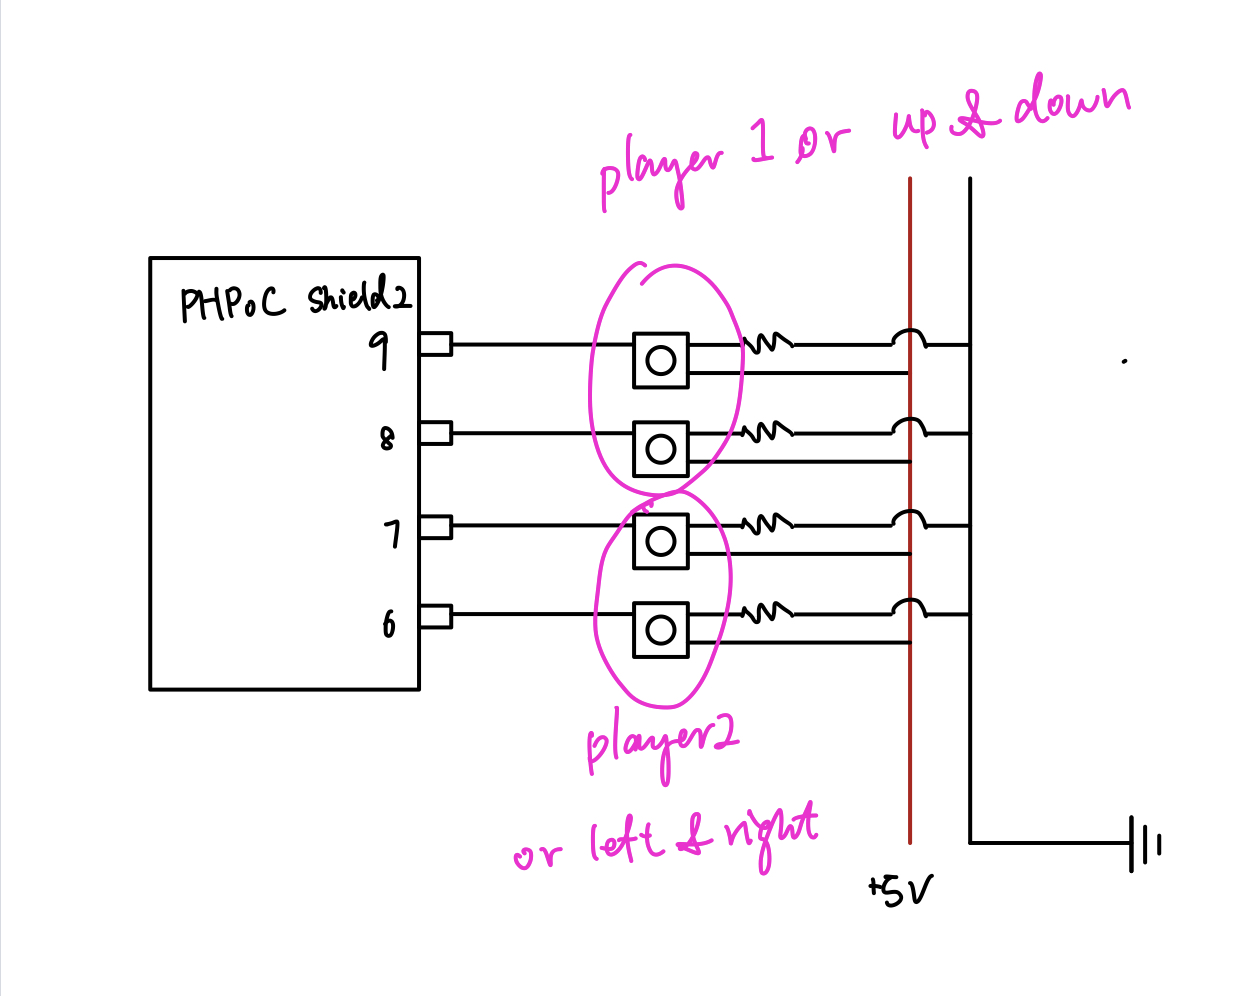 player 1 or up & down
PHPoC shield2
9
8
7
6
player2
or left & right
+5V